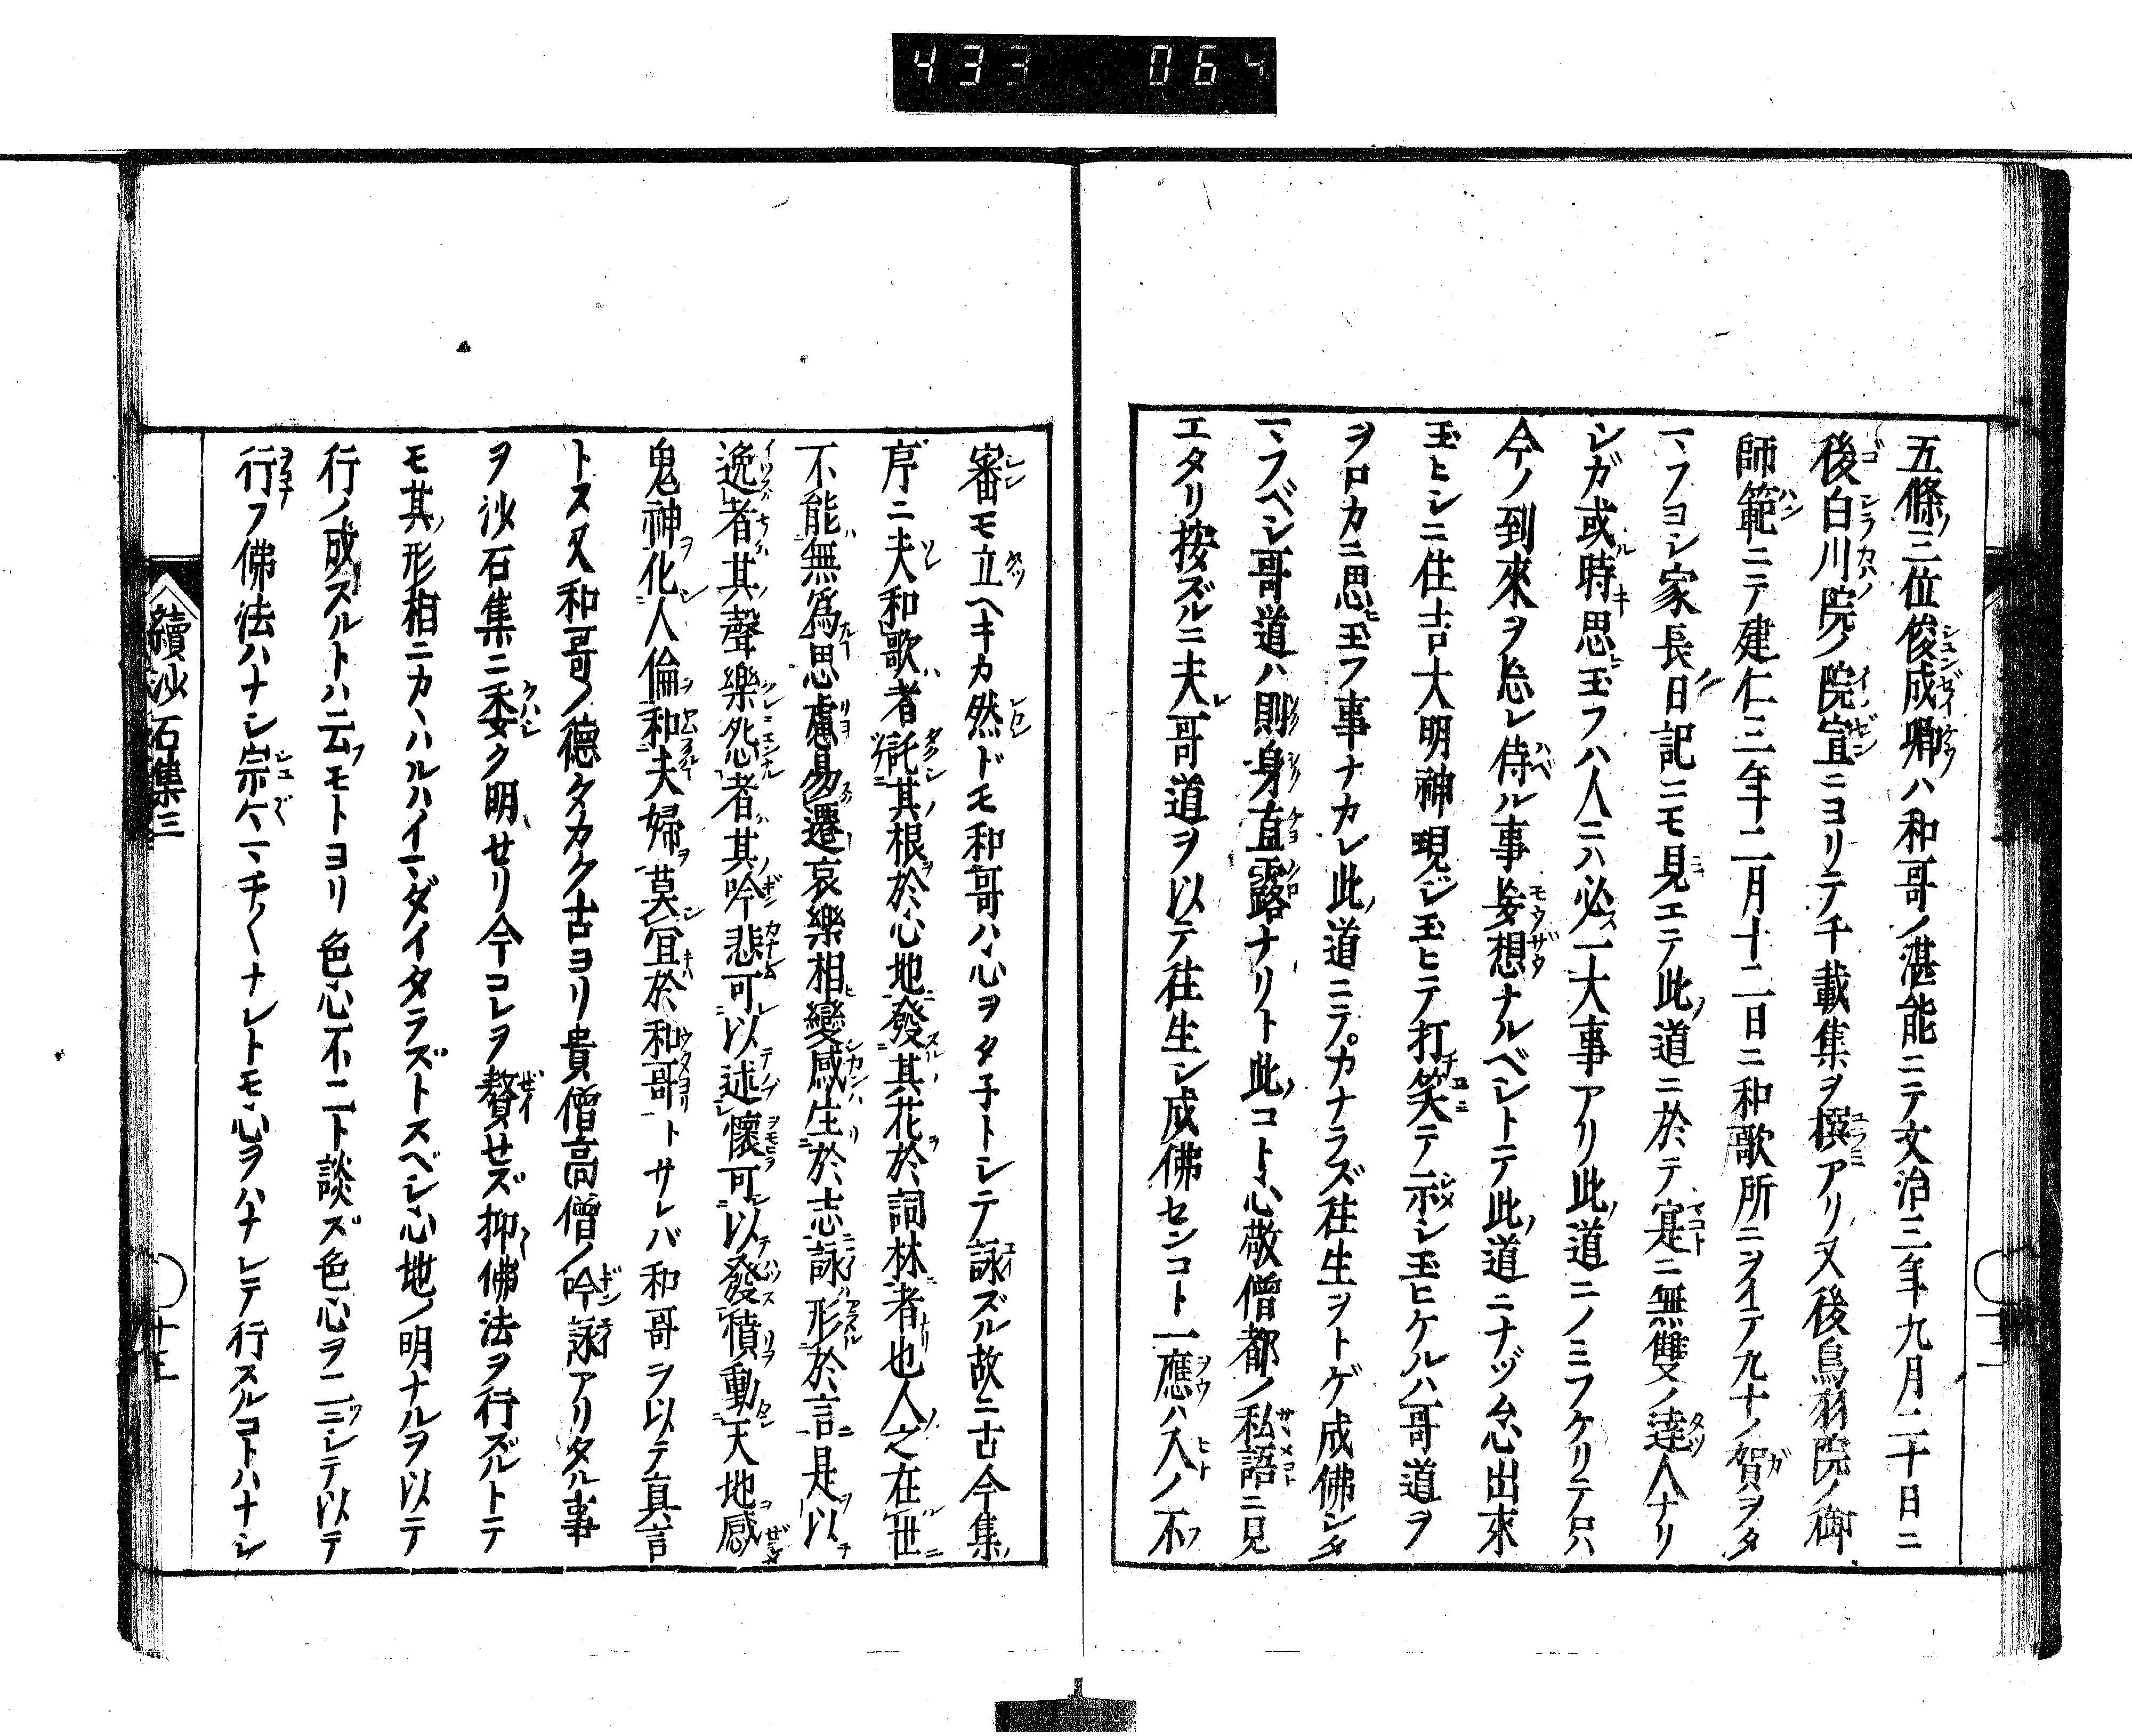 433 064
五條ノ三位俊成卿ハ和哥ノ湛能ニテ文治三年九月二十日ニ
後白川院ノ院宣ニヨリテ千載集ヲ撰アリ又後鳥羽院ノ御
師範ニテ建仁三年十二月十二日ニ和歌所ニヲイテ九十ノ賀ヲタ
マフヨシ家長日記ニモ見エテ此道ニ於テ寔ニ無雙ノ達人ナリ
シガ或時思玉フハ人ニハ必一大事アリ此道ニノミフケリテ只
今ノ到來ヲ忘レ侍ル事妄想ナルベシトテ此道ニナヅム心出來
玉ヒシニ住吉大明神現ジ玉ヒテ打笑テ示シ玉ヒケルハ哥道ヲ
ヲロカニ思ヒ玉フ事ナカレ此道ニテカナラズ往生ヲトゲ成佛シタ
マフベシ哥道ハ則身直露ナリト此コト心敬僧都ノ私語ニ見
エタリ按ズルニ夫哥道ヲ以テ往生シ成佛センコト一應ハ人ノ不
審モ立ヘキカ然ドモ和哥ハ心ヲタ子トシテ詠ズル故ニ古今集ノ
序ニ夫和歌者託其根於心地發其花於詞林者也人之在世
不能無爲思慮易遷哀樂相變感生於志詠形於言是以
逸者其聲樂怨者其吟悲可以述懷可以發憤動天地感
鬼神化人倫和夫婦莫宜於和哥トサレバ和哥ヲ以テ真言
トス又和哥ノ德タカク古ヨリ貴僧高僧ノ吟詠アリタル事
ヲ沙石集ニ委ク明セリ今コレヲ贅せズ抑佛法ヲ行ズルトテ
モ其形相ニカヽハルハイマダイタラズトスベシ心地ノ明ナルヲ以テ
行ノ成スルトハ云モトヨリ色心不二ト談ズ色心ヲ二ニシテ以テ
行フ佛法ハナシ宗々マチ〱ナレトモ心ヲハナレテ行スルコトハナシ
續沙石集三